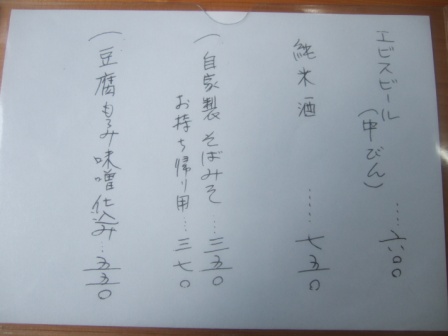 エビスビール
(中びん)……六〇〇
純米酒……七五〇
(自家製そばみそ……三五〇
お持ち帰り用……三七〇
(豆腐もろみ味噌仕込み…五五〇